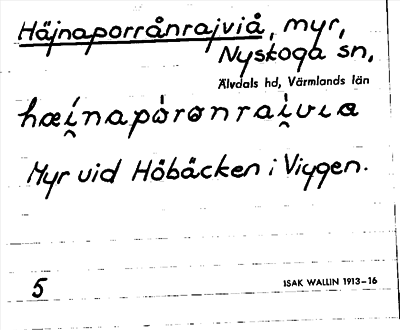 Häjnaporrånrajviå, myr,
Nyskoga sn,
Älvdals hd, Värmlands län
hæi̯napòrɷnrai̯vıɑ
Myr vid Höbäcken i Viggen.
5
ISAK WALLIN 1913–16